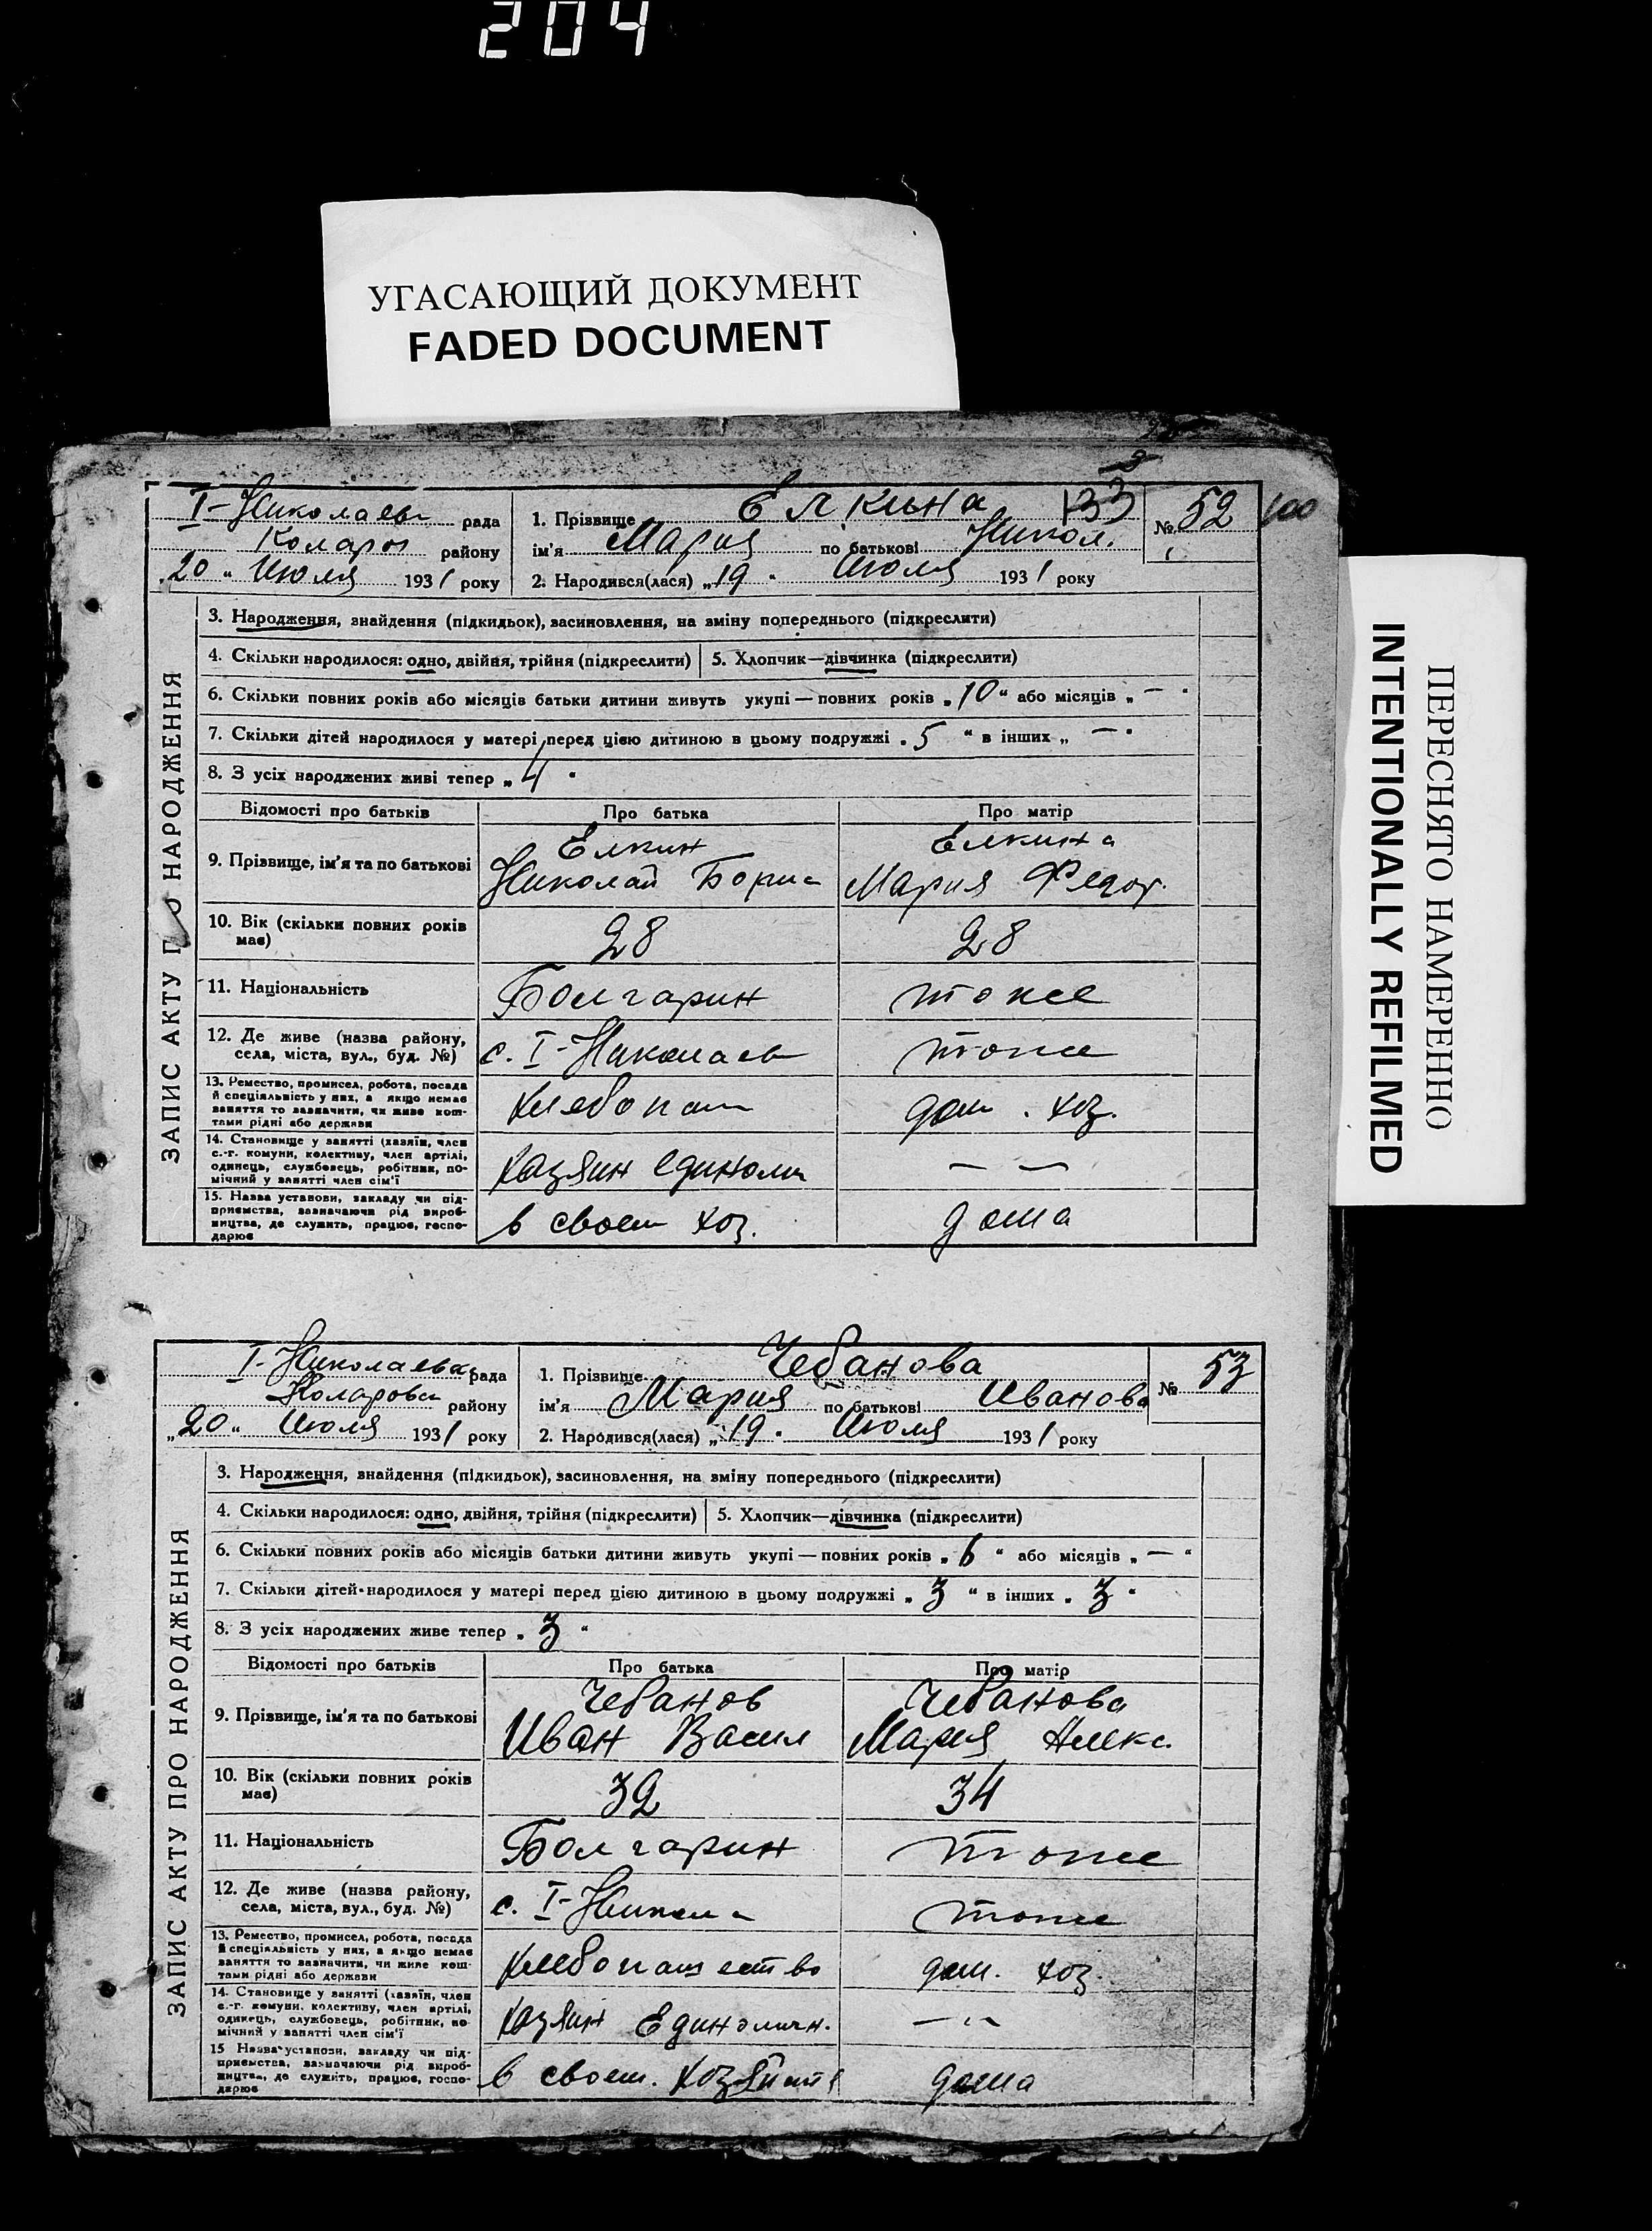 204
УГАСАЮЩИЙ ДОКУМЕНТ
FADED DOCUMENT
ПЕРЕСНЯТО НАМЕРЕННО
INTENTIONALLY REFILMED
133
100
ЗАПИС АКТУ ПРО НАРОДЖЕННЯ
I-Николаевк рада
Коларов району
„20“ Июля 1931 року
1. Прізвище Елкина
ім'я Мария по батькові Никол.
2. Народився(лася) „19“ Июля 1931 року
№ 52
3. Народження, знайдення (підкидьок), засиновлення, на зміну попереднього (підкреслити)
4. Скільки народилося: одно, двійня, трійня (підкреслити) 5. Хлопчик—дівчинка (підкреслити)
6. Скільки повних років або місяців батьки дитини живуть укупі — повних років „10“ або місяців „—“
7. Скільки дітей народилося у матері перед цією дитиною в цьому подружжі „5“ в інших „—“
8. З усіх народжених живі тепер „4“
Відомості про батьків Про батька Про матір
9. Прізвище, ім'я та по батькові Елкин Николай Борис Елкина Мария Федор.
10. Вік (скільки повних років має) 28 28
11. Національність Болгарин тоже
12. Де живе (назва району, села, міста, вул., буд. №) с. I-Николаев тоже
13. Ремество, промисел, робота, посада й спеціяльність у них, а якщо немає заняття то зазначити, чи живе коштами рідні або держави Хлебопаш дом. хоз.
14. Становище у занятті (хазяїн, член с.-г. комуни, колективу, член артілі, одинець, службовець, робітник, помічний у занятті член сім'ї Хозяин единолич — —
15. Назва установи, закладу чи підприємства, зазначаючи рід виробництва, де служить, працює, господарює в своем хоз. дома
ЗАПИС АКТУ ПРО НАРОДЖЕННЯ
I-Николаевка рада
Коларовск району
„20“ Июля 1931 року
1. Прізвище Чебанова
ім'я Мария по батькові Иванова
2. Народився(лася) „19“ Июля 1931 року
№ 53
3. Народження, знайдення (підкидьок), засиновлення, на зміну попереднього (підкреслити)
4. Скільки народилося: одно, двійня, трійня (підкреслити) 5. Хлопчик—дівчинка (підкреслити)
6. Скільки повних років або місяців батьки дитини живуть укупі — повних років „6“ або місяців „—“
7. Скільки дітей народилося у матері перед цією дитиною в цьому подружжі „3“ в інших „3“
8. З усіх народжених живе тепер „3“
Відомості про батьків Про батька Про матір
9. Прізвище, ім'я та по батькові Чебанов Иван Васил Чебанова Мария Алекс.
10. Вік (скільки повних років має) 32 34
11. Національність Болгарин тоже
12. Де живе (назва району, села, міста, вул., буд. №) с. I-Никола тоже
13. Ремество, промисел, робота, посада й спеціяльність у них, а якщо немає заняття то зазначити, чи живе коштами рідні або держави Хлебопашество дом. хоз.
14. Становище у занятті (хазяїн, член с.-г. комуни, колективу, член артілі, одинець, службовець, робітник, помічний у занятті член сім'ї Хозяин Единоличн. — „
15 Назва установи, закладу чи підприємства, зазначаючи рід виробництва, де служить, працює, господарює в своем. хозяйств дома